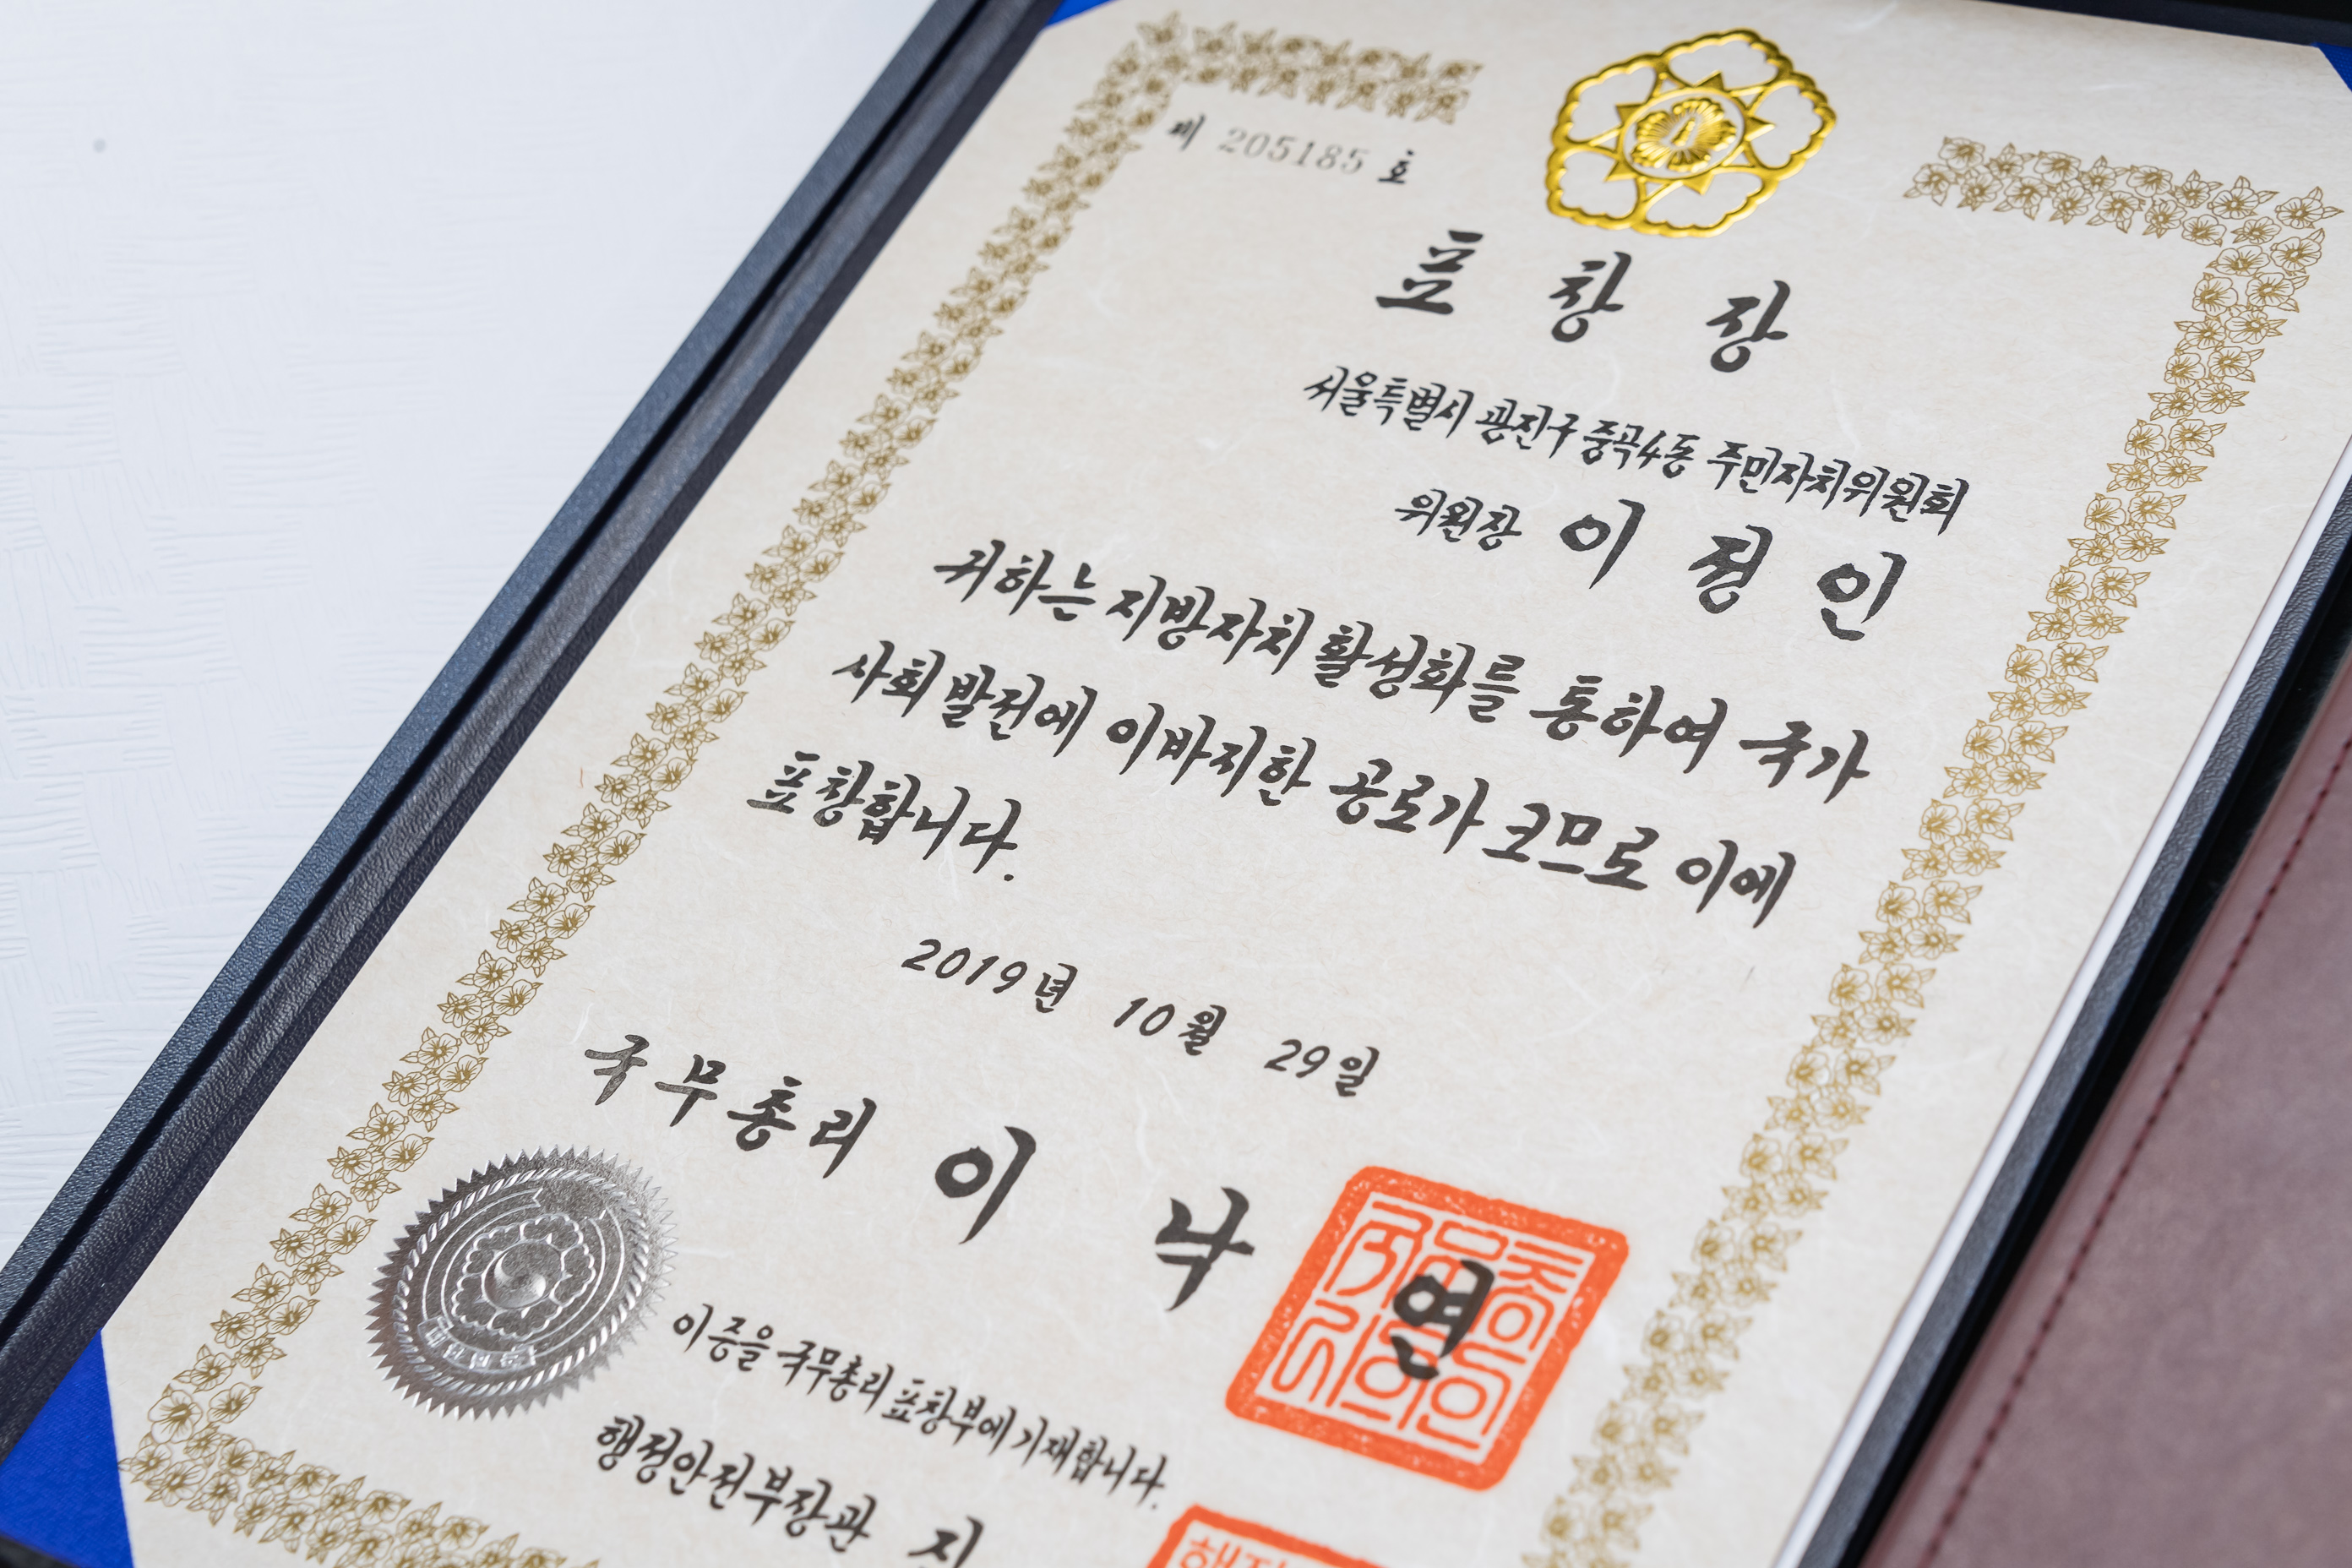 제 205185 호
표 창 장
서울특별시 광진구 중곡4동 주민자치위원회
위원장 이 정 인
귀하는 지방자치 활성화를 통하여 국가
사회 발전에 이바지한 공로가 크므로 이에
표창합니다.
2019년 10월 29일
국무총리 이 낙 연
이 증을 국무총리 표창부에 기재합니다.
행정안전부장관